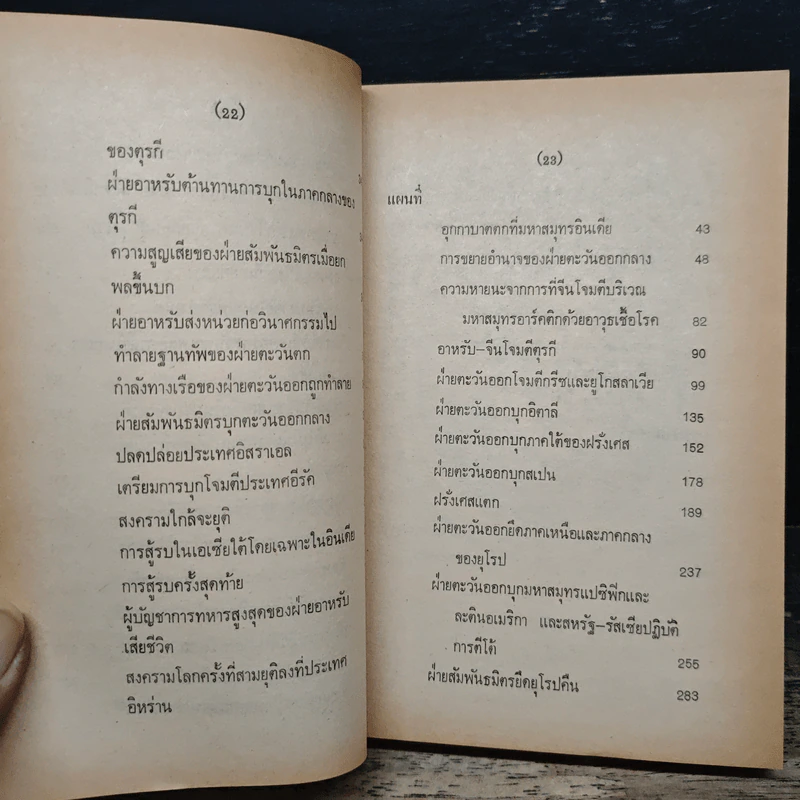 (22)
ของตุรกี
ฝ่ายอาหรับต้านทานการบุกในภาคกลางของ
ตุรกี
ความสูญเสียของฝ่ายสัมพันธมิตรเมื่อยก
พลขึ้นบก
ฝ่ายอาหรับส่งหน่วยก่อวินาศกรรมไป
ทำลายฐานทัพของฝ่ายตะวันตก
กำลังทางเรือของฝ่ายตะวันออกถูกทำลาย
ฝ่ายสัมพันธมิตรบุกตะวันออกกลาง
ปลดปล่อยประเทศอิสราเอล
เตรียมการบุกโจมตีประเทศอีรัค
สงครามใกล้จะยุติ
การสู้รบในเอเซียใต้โดยเฉพาะในอินเดีย
การสู้รบครั้งสุดท้าย
ผู้บัญชาการทหารสูงสุดของฝ่ายอาหรับ
เสียชีวิต
สงครามโลกครั้งที่สามยุติลงที่ประเทศ
อิหร่าน
(23)
แผนที่
อุกกาบาตตกที่มหาสมุทรอินเดีย 43
การขยายอำนาจของฝ่ายตะวันออกกลาง 48
ความหายนะจากการที่จีนโจมตีบริเวณ
มหาสมุทรอาร์คติกด้วยอาวุธเชื้อโรค 82
อาหรับ–จีนโจมตีตุรกี 90
ฝ่ายตะวันออกโจมตีกรีซและยูโกสลาเวีย 99
ฝ่ายตะวันออกบุกอิตาลี 135
ฝ่ายตะวันออกบุกภาคใต้ของฝรั่งเศส 152
ฝ่ายตะวันออกบุกสเปน 178
ฝรั่งเศสแตก 189
ฝ่ายตะวันออกยึดภาคเหนือและภาคกลาง
ของยุโรป 237
ฝ่ายตะวันออกบุกมหาสมุทรแปซิฟิกและ
ละตินอเมริกา และสหรัฐ–รัสเซียปฏิบัติ
การตีโต้ 255
ฝ่ายสัมพันธมิตรยึดยุโรปคืน 283